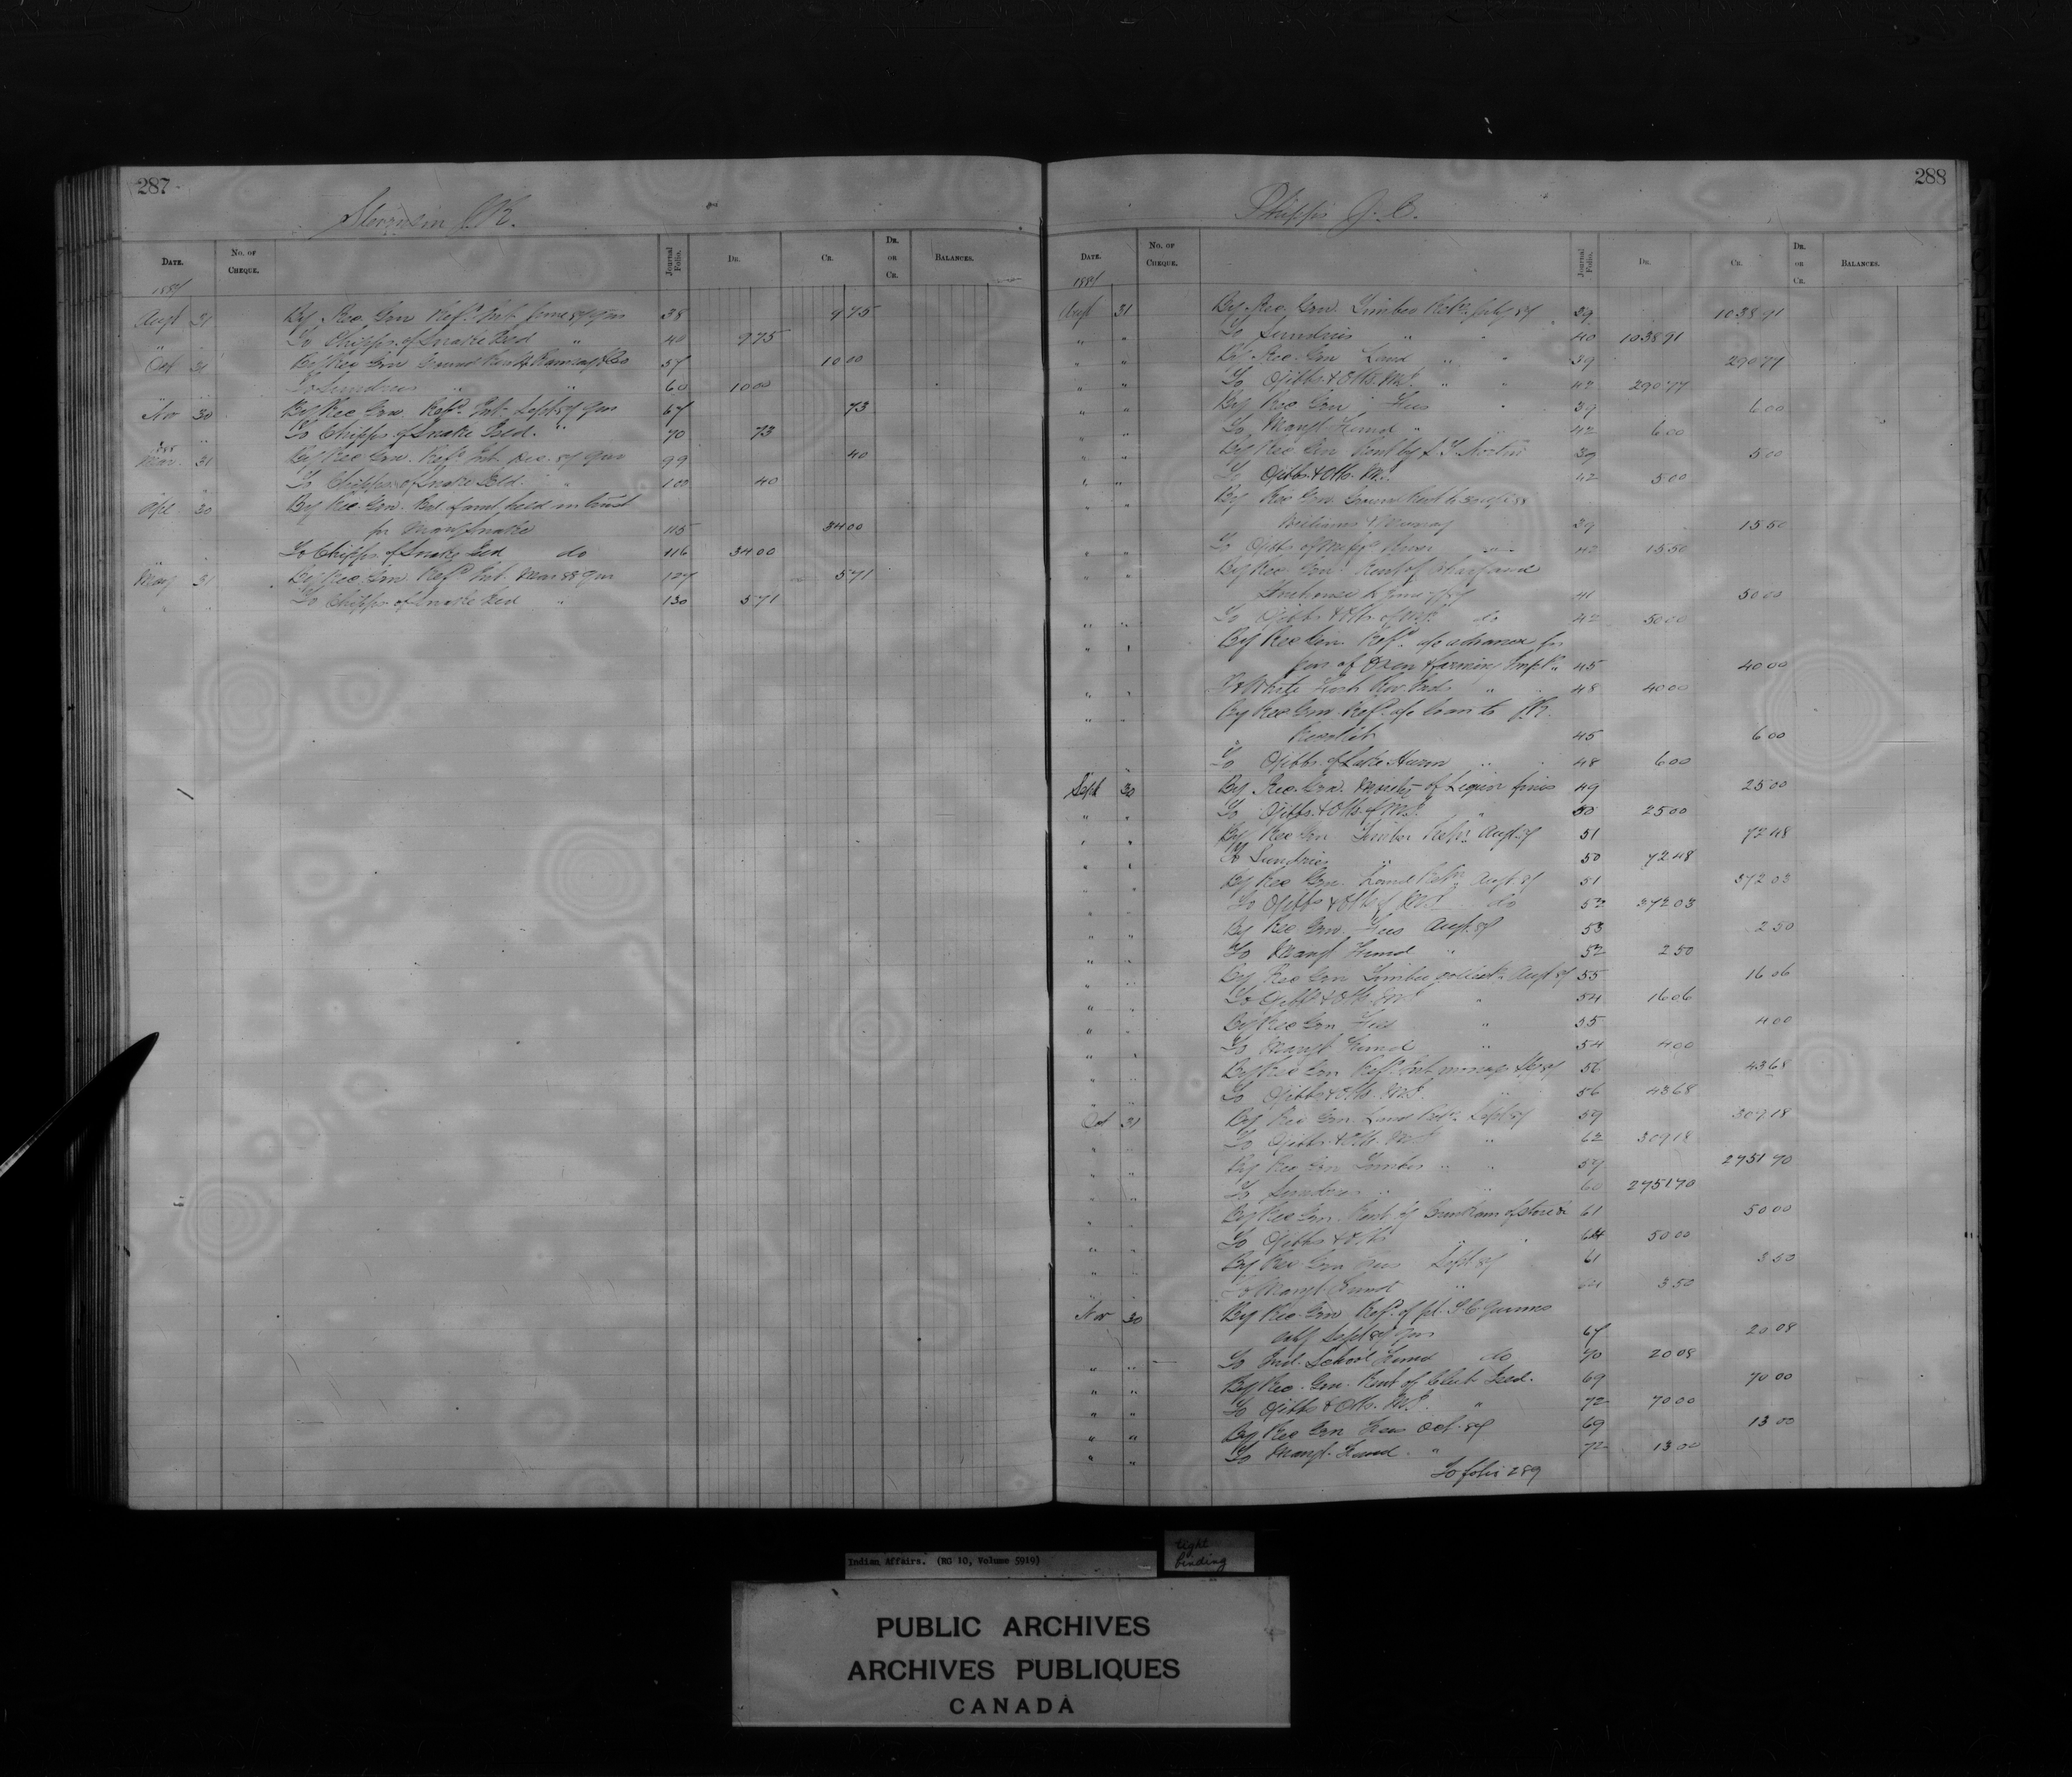 287
J.R.
DATE.
No. OF CHEQUE.
Journal Folio.
DR.
CR.
DR. OR CR.
BALANCES.
1887
Augt 31 By Rec. Gen Refd Int June 87 qrs 38 975
To Chipps. of Snake Isld " 40 975
Oct 31 By Rec Gen Ground Rent 57 1000
To Sundries " " 60 1000
Nov 30 By Rec Gen. Refd Int Sept 87 qrs 67 73
To Chipps of Snake Isld. " 70 73
Mar. 31 By Rec Gen. Refd Int Dec. 87 qrs 99 40
To Chippas of Snake Isld. " 100 40
Apl 30 By Rec. Gen. Bal of amt held in trust
for Mary Snake 115 3400
To Chipps of Snake Isld do 116 3400
May 31 By Rec. Gen Refd Int. Mar 88 qrs 127 571
To Chipps of Snake Isld " 130 571
288
Phipps J. C.
DATE.
No. OF CHEQUE.
Journal Folio.
DR.
CR.
DR. OR CR.
BALANCES.
1887
Augt 31 By Rec. Gen. Timber Retn July 87 39 103891
" " To Sundries " " 40 103891
" " By Rec. Gen Land " " 39 29077
" " To Ojibbs & Otts. Md. " " 42 29077
" " By Rec Gen Fees " 39 600
" " To Mangt Fund " 42 600
" " By Rec Gen Rent by 39 500
" " To Ojibbs & Otts. Md. 42 500
" " By Rec Gen. Ground Rent to
Williams & Murray 39 1550
" " To Ojibbs of River " 42 1550
" " By Rec Gen Rent of Wharf and
to June 41 5000
" " To Ojibbs & Otts. of Md. do 42 5000
" " By Rec Gen. Refd a/c advance for
pur. of Oxen & farming Impts. 45 4000
" " To White Fish Riv. Inds " 48 4000
" " By Rec Gen. Refd a/c loan to
45 600
" " To Ojibbs. of Lake Huron " 48 600
Sept 30 By Rec. Gen. Moiety of Liquor fines 49 2500
" " To Ojibbs. & Otts. of Md. " 50 2500
" " By Rec Gen Timber Retn. Augt. 87 51 7248
" " To Sundries " 50 7248
" " By Rec Gen. Land Retn Augt 87 51 37203
" " To Ojibbs & Otts of Md. do 52 37203
" " By Rec Gen. Fees Augt. 87 53 250
" " To Mangt Fund " 52 250
" " By Rec Gen Timber Augt 87 55 1606
" " To Ojibbs & Otts Md " 54 1606
" " By Rec Gen Fees " 55 400
" " To Mangt Fund " 54 400
" " By Rec Gen Refd Int 56 4368
" " To Ojibbs & Otts. Md. 56 4368
Oct 31 By Rec Gen Land Retn. Sept 87 59 30918
" " To Ojibbs. & Otts. Md. " 62 30918
" " By Rec Gen Timber " " 59 275170
" " To Sundries " " 60 275170
" " By Rec Gen. Rent of 61 5000
" " To Ojibbs & Otts " " 64 5000
" " By Rec Gen Fees Sept 87 61 350
" " To Mangt Fund " 64 350
Nov 30 By Rec. Gen Refd of pt.
Sept 87 qrs 67 2008
" " To Ind. School Fund do 70 2008
" " By Rec. Gen. Rent of Isld. 69 7000
" " To Ojibbs & Otts. Md. " 72 7000
" " By Rec Gen Fees Oct. 87 69 1300
" " To Mangt. Fund. " 72 1300
To folio 289
Indian Affairs. (RG 10, Volume 5919)
tight binding
PUBLIC ARCHIVES
ARCHIVES PUBLIQUES
CANADA